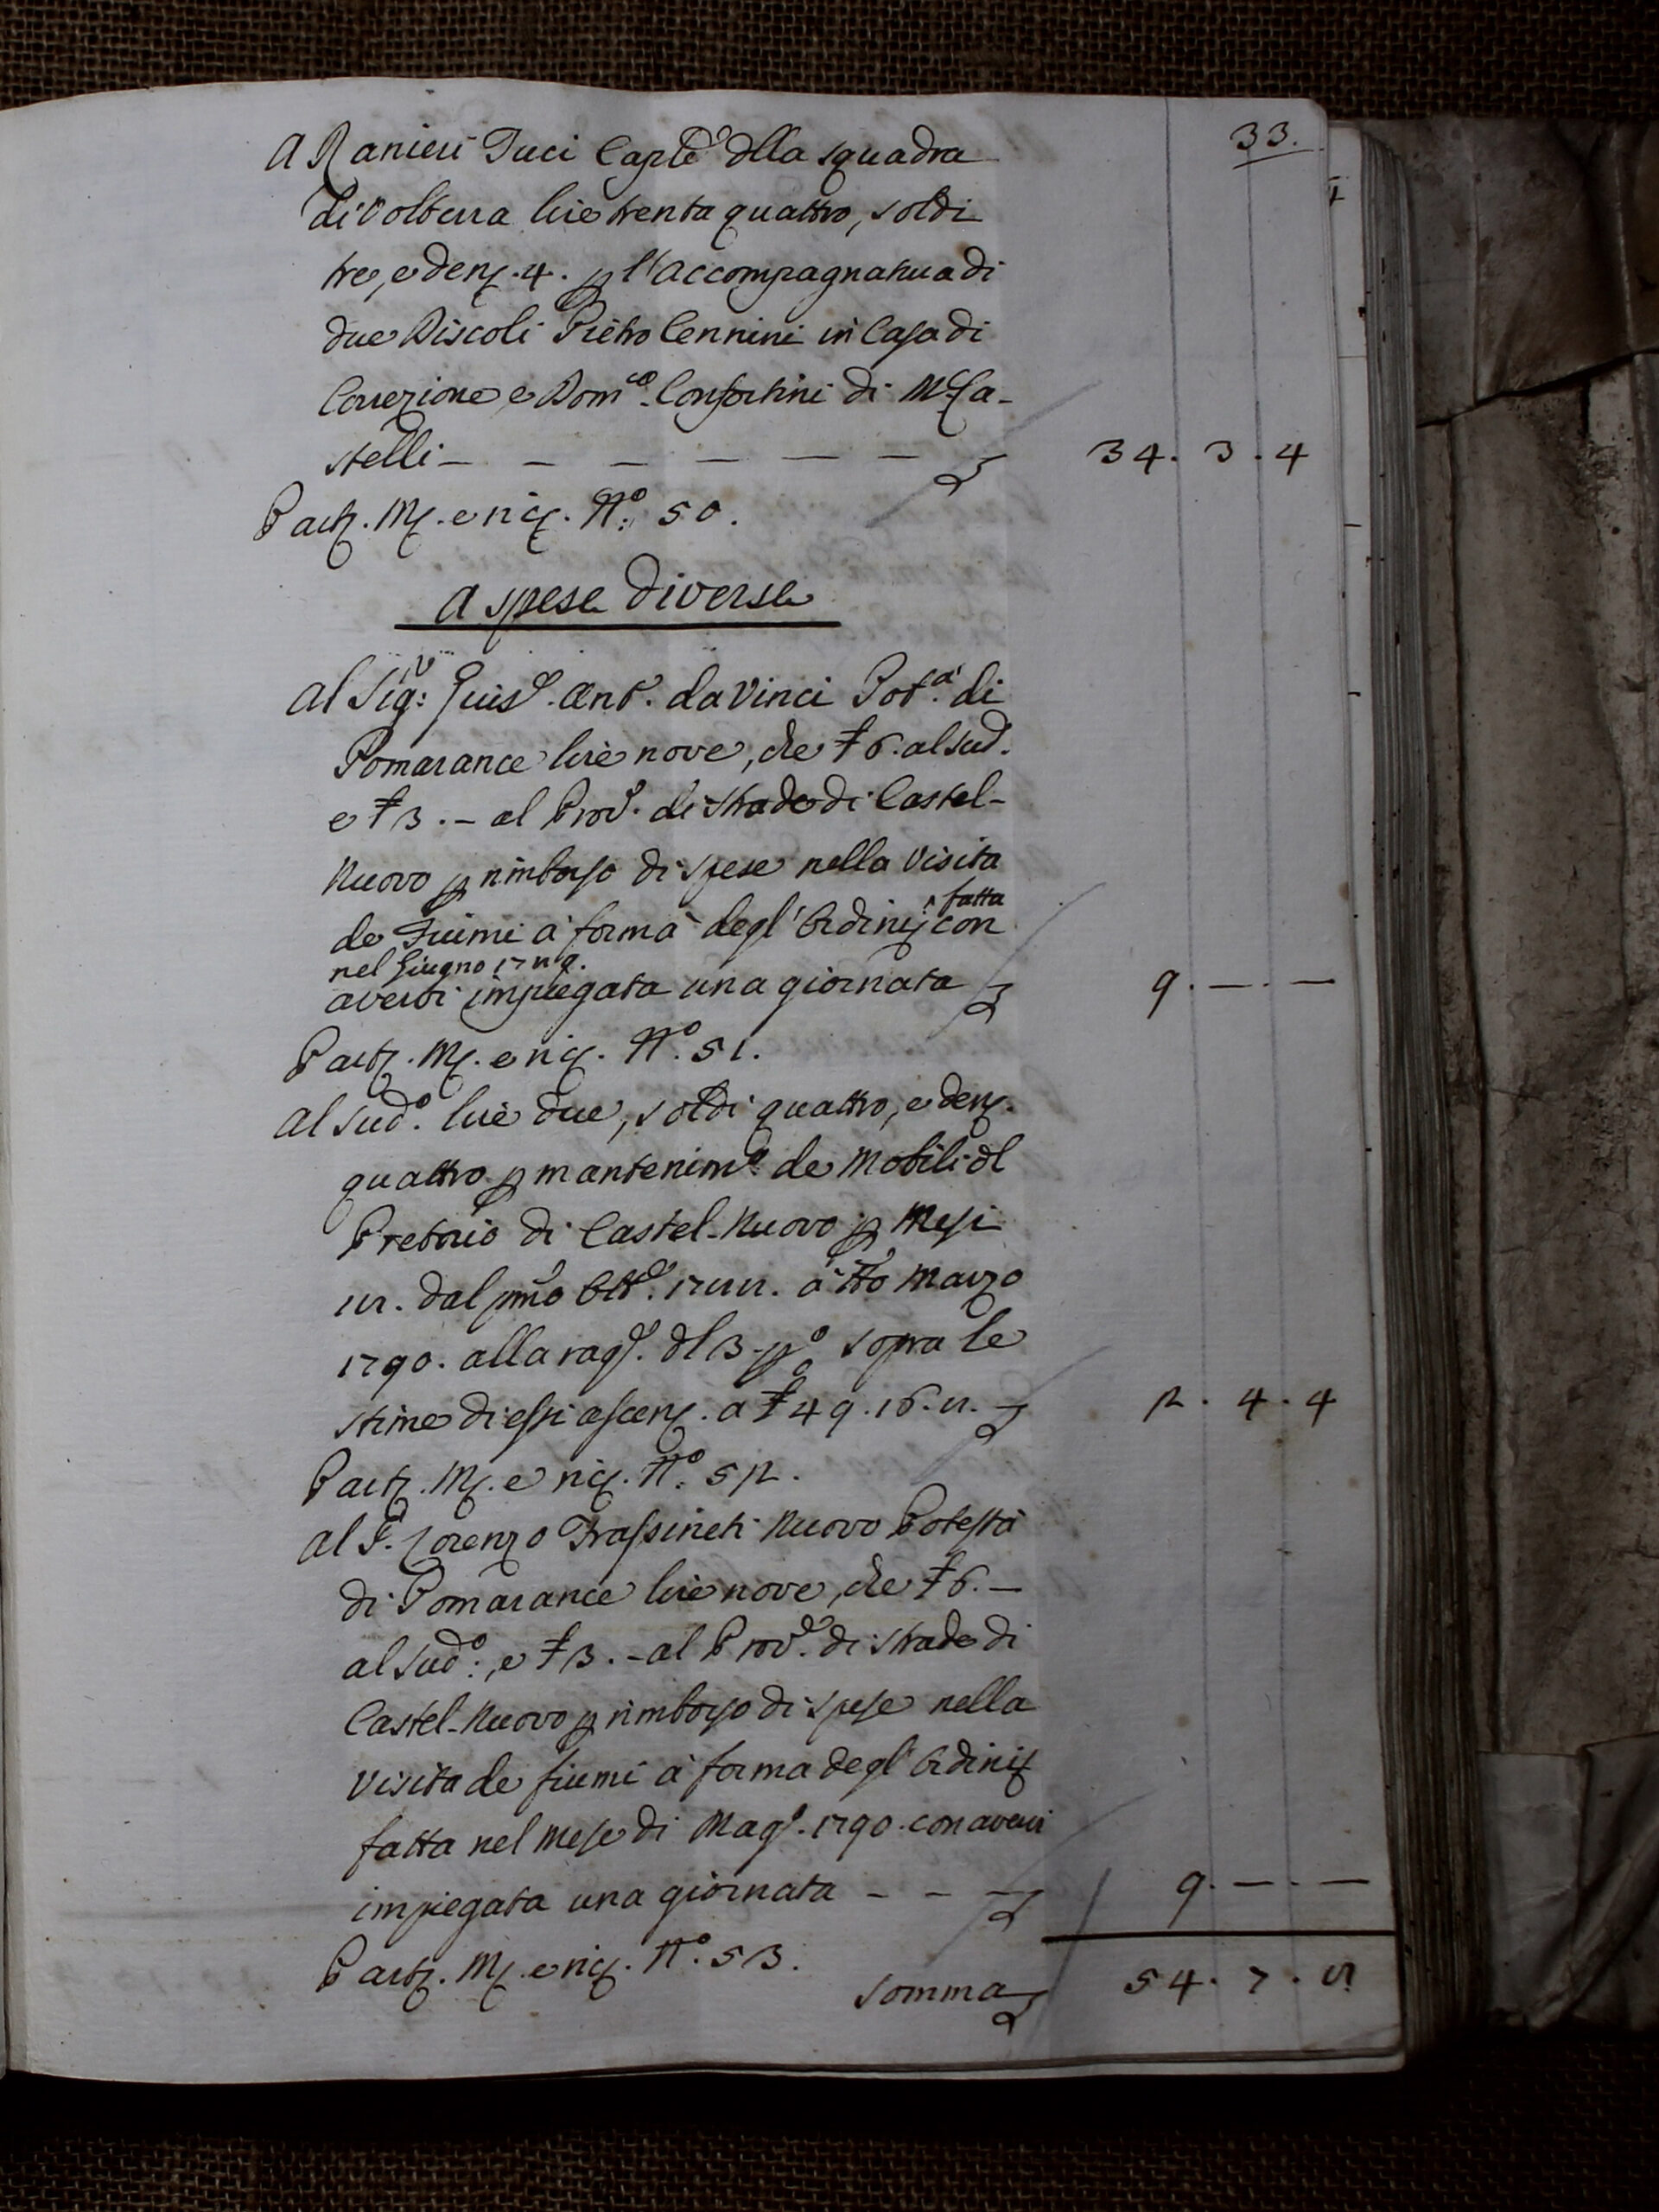 33.
A Ranieri Tuci Cap.le dlla squadra
di Volterra lire trenta quattro, soldi
tre, e den. 4. p l'accompagnatura di
due Discoli Pietro Cennini in Casa di
Correzione e Dom.co Confortini di M.e Ca-
stelli — — — — — — 34. 3. 4
Part. M. e ric. N.o 50.
A spese Diverse
Al Sig.r Gius.e Ant.o da Vinci Pot.à di
Pomarance lire nove, che £ 6. al sud.
e £ 3. — al Prov.e di strade di Castel-
Nuovo p rimborso di spese nella visita
de Fiumi a forma degl'Ordini, fatta con
nel Giugno 1789.
avervi impiegata una giornata 9. — . —
Part. M. e ric. N.o 51.
Al sud.o lire due, soldi quattro, e den.
quattro p mantenim.o de Mobili dl
Pretorio di Castel-Nuovo p Mesi
18. dal pmo Ott.e 1788. a tto Marzo
1790. alla rag.e dl 3. p o/o sopra le
stime di essi ascen. a £ 49. 16. 8. 2. 4. 4
Part. M. e ric. N.o 52.
Al S. Lorenzo Frassineti Nuovo Potestà
di Pomarance lire nove, che £ 6. —
al sud.o, e £ 3. — al Prov.e di strade di
Castel-Nuovo p rimborso di spese nella
visita de fiumi a forma degl'Ordini
fatta nel mese di Mag.o 1790. con avervi
impiegata una giornata — — — 9. — . —
Part. M. e ric. N.o 53.
Somma 54. 7. 8